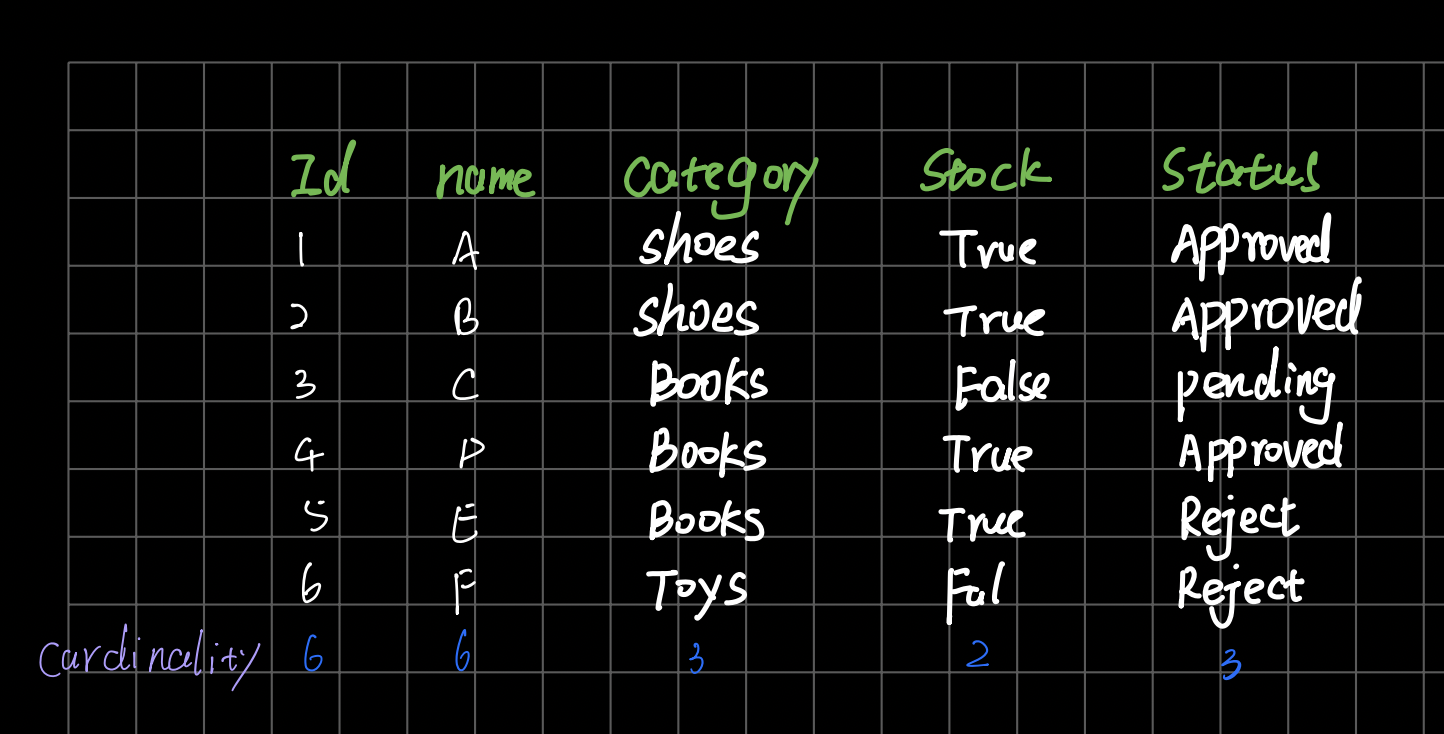 Id name Category Stock Status
1 A shoes True Approved
2 B shoes True Approved
3 C Books False pending
4 D Books True Approved
5 E Books True Reject
6 F Toys Fal Reject
Cardinality 6 6 3 2 3